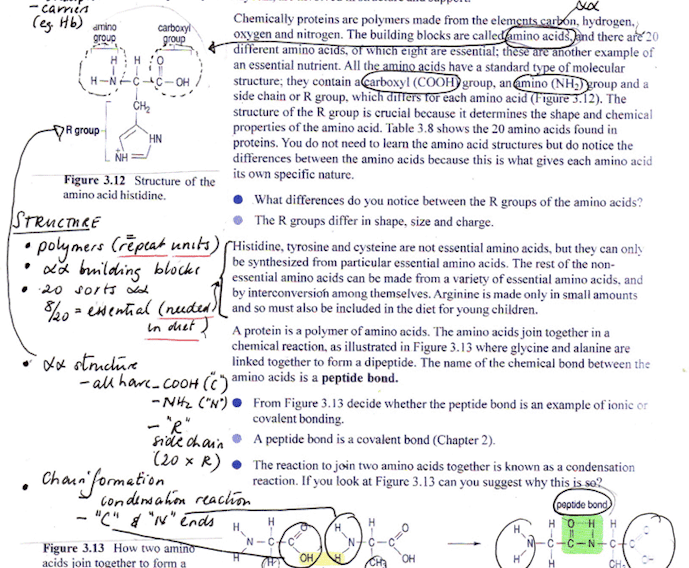 - carried
(eg Hb)
amino
group
carboxyl
group
H H O
H–N–C–C–OH
CH₂
R group
HN
NH
Figure 3.12 Structure of the
amino acid histidine.
αα
Chemically proteins are polymers made from the elements carbon, hydrogen,
oxygen and nitrogen. The building blocks are called amino acids, and there are 20
different amino acids, of which eight are essential; these are another example of
an essential nutrient. All the amino acids have a standard type of molecular
structure; they contain a carboxyl (COOH) group, an amino (NH₂) group and a
side chain or R group, which differs for each amino acid (Figure 3.12). The
structure of the R group is crucial because it determines the shape and chemical
properties of the amino acid. Table 3.8 shows the 20 amino acids found in
proteins. You do not need to learn the amino acid structures but do notice the
differences between the amino acids because this is what gives each amino acid
its own specific nature.
● What differences do you notice between the R groups of the amino acids?
● The R groups differ in shape, size and charge.
Histidine, tyrosine and cysteine are not essential amino acids, but they can only
be synthesized from particular essential amino acids. The rest of the non-
essential amino acids can be made from a variety of essential amino acids, and
by interconversion among themselves. Arginine is made only in small amounts
and so must also be included in the diet for young children.
A protein is a polymer of amino acids. The amino acids join together in a
chemical reaction, as illustrated in Figure 3.13 where glycine and alanine are
linked together to form a dipeptide. The name of the chemical bond between the
amino acids is a peptide bond.
● From Figure 3.13 decide whether the peptide bond is an example of ionic or
covalent bonding.
● A peptide bond is a covalent bond (Chapter 2).
● The reaction to join two amino acids together is known as a condensation
reaction. If you look at Figure 3.13 can you suggest why this is so?
STRUCTURE
• polymers (repeat units)
• αα building blocks
• 20 sorts αα
8/20 = essential (needed
in diet)
• αα structure
- all have - COOH ("C")
- NH₂ ("N")
- "R"
side chain
(20 x R)
• Chain formation
condensation reaction
- "C" & "N" ends
Figure 3.13 How two amino
acids join together to form a
peptide bond
H H O
N–C–C
H OH
H H O
N–C–C
H CH₃ OH
H H O H H O
N–C–C–N–C–C